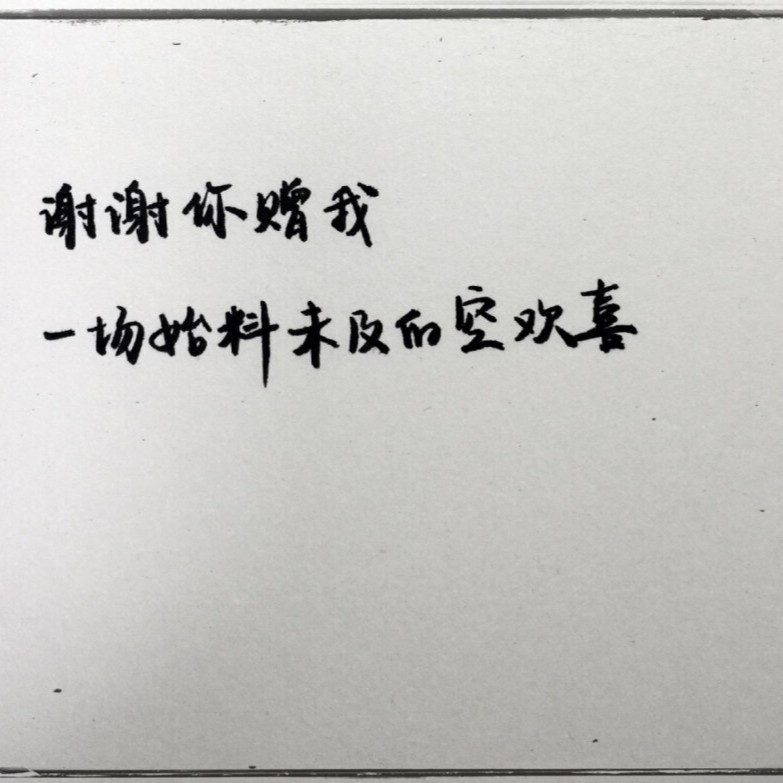 谢谢你赠我
一场始料未及的空欢喜